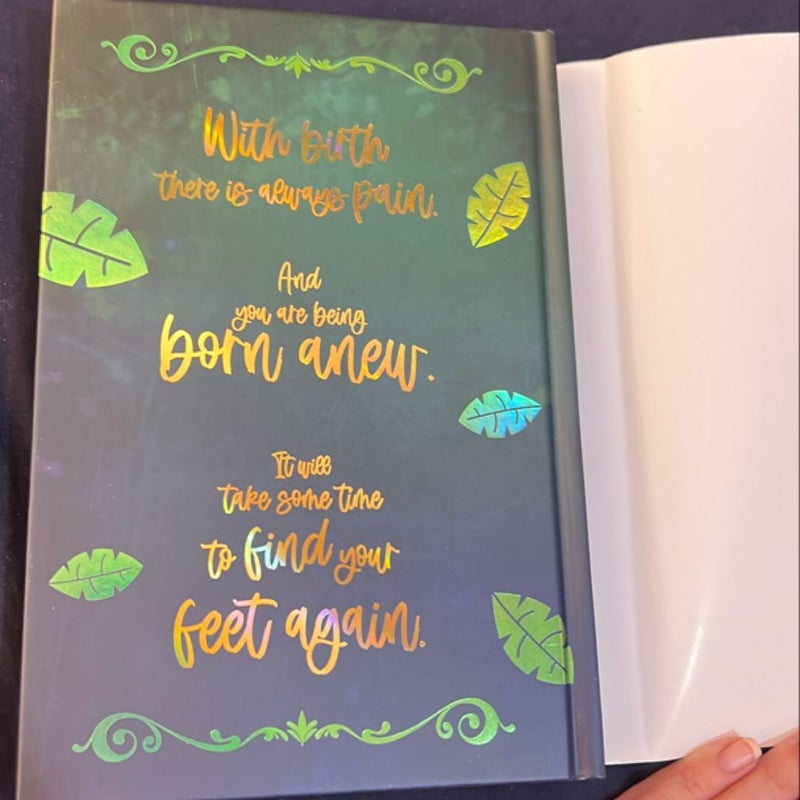 With birth
there is always pain.
And
you are being
born anew.
It will
take some time
to find your
feet again.